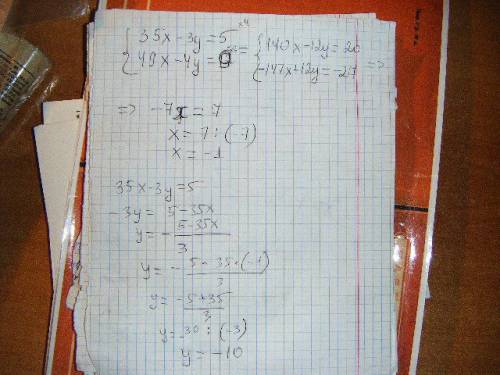 { 35x - 3y = 5 ×4
{ 49x - 4y = 9 = { 140x - 12y = 20
{ -147x + 12y = -27 =>
=> -7x = 7
x = 7 : (-7)
x = -1
35x - 3y = 5
-3y = 5 - 35x
y = - 5 - 35x / 3
y = - 5 - 35 · (-1) / 3
y = -5+35 / 3
y = 30 : (-3)
y = -10